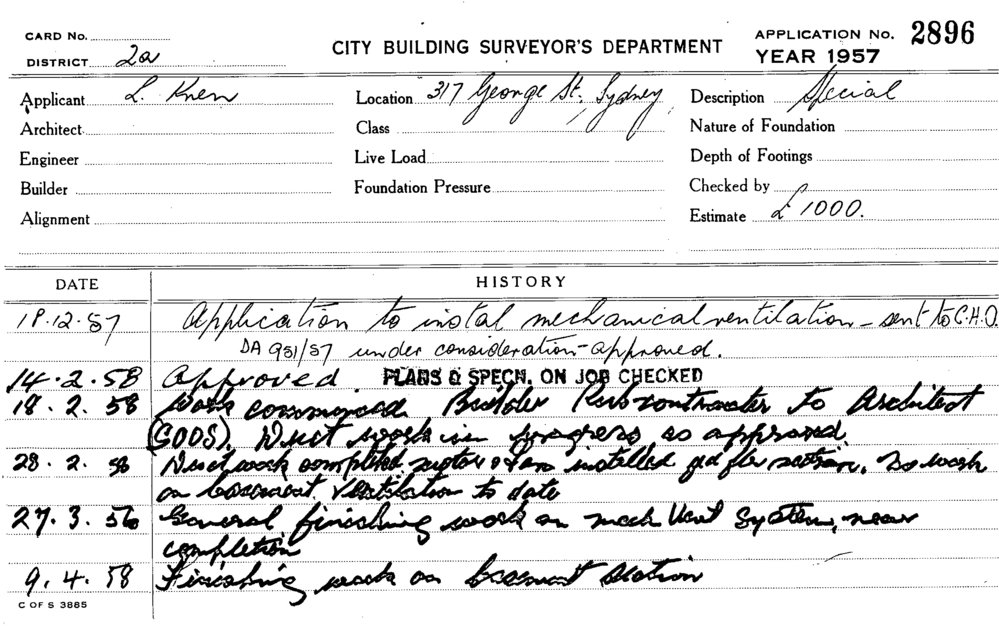 CARD No.
DISTRICT 2a
CITY BUILDING SURVEYOR'S DEPARTMENT
APPLICATION No. 2896
YEAR 1957
Applicant L. Kren
Location 317 George St., Sydney
Description Special
Architect
Class
Nature of Foundation
Engineer
Live Load
Depth of Footings
Builder
Foundation Pressure
Checked by
Alignment
Estimate £1000.
DATE HISTORY
18.12.57 Application to instal mechanical ventilation – sent to C.H.O.
DA 951/57 under consideration – approved.
14.2.58 Approved. PLANS & SPECN. ON JOB CHECKED
18.2.58 Work commenced. Builder Subcontractor to Architect
(SODS). Duct work in progress as approved.
28.2.58 Duct work completed, motor & fan installed gd flr section. No work
on basement ventilation to date
27.3.58 General finishing work on mech Vent System, near
completion
9.4.58 Finishing work on basement section
C OF S 3885